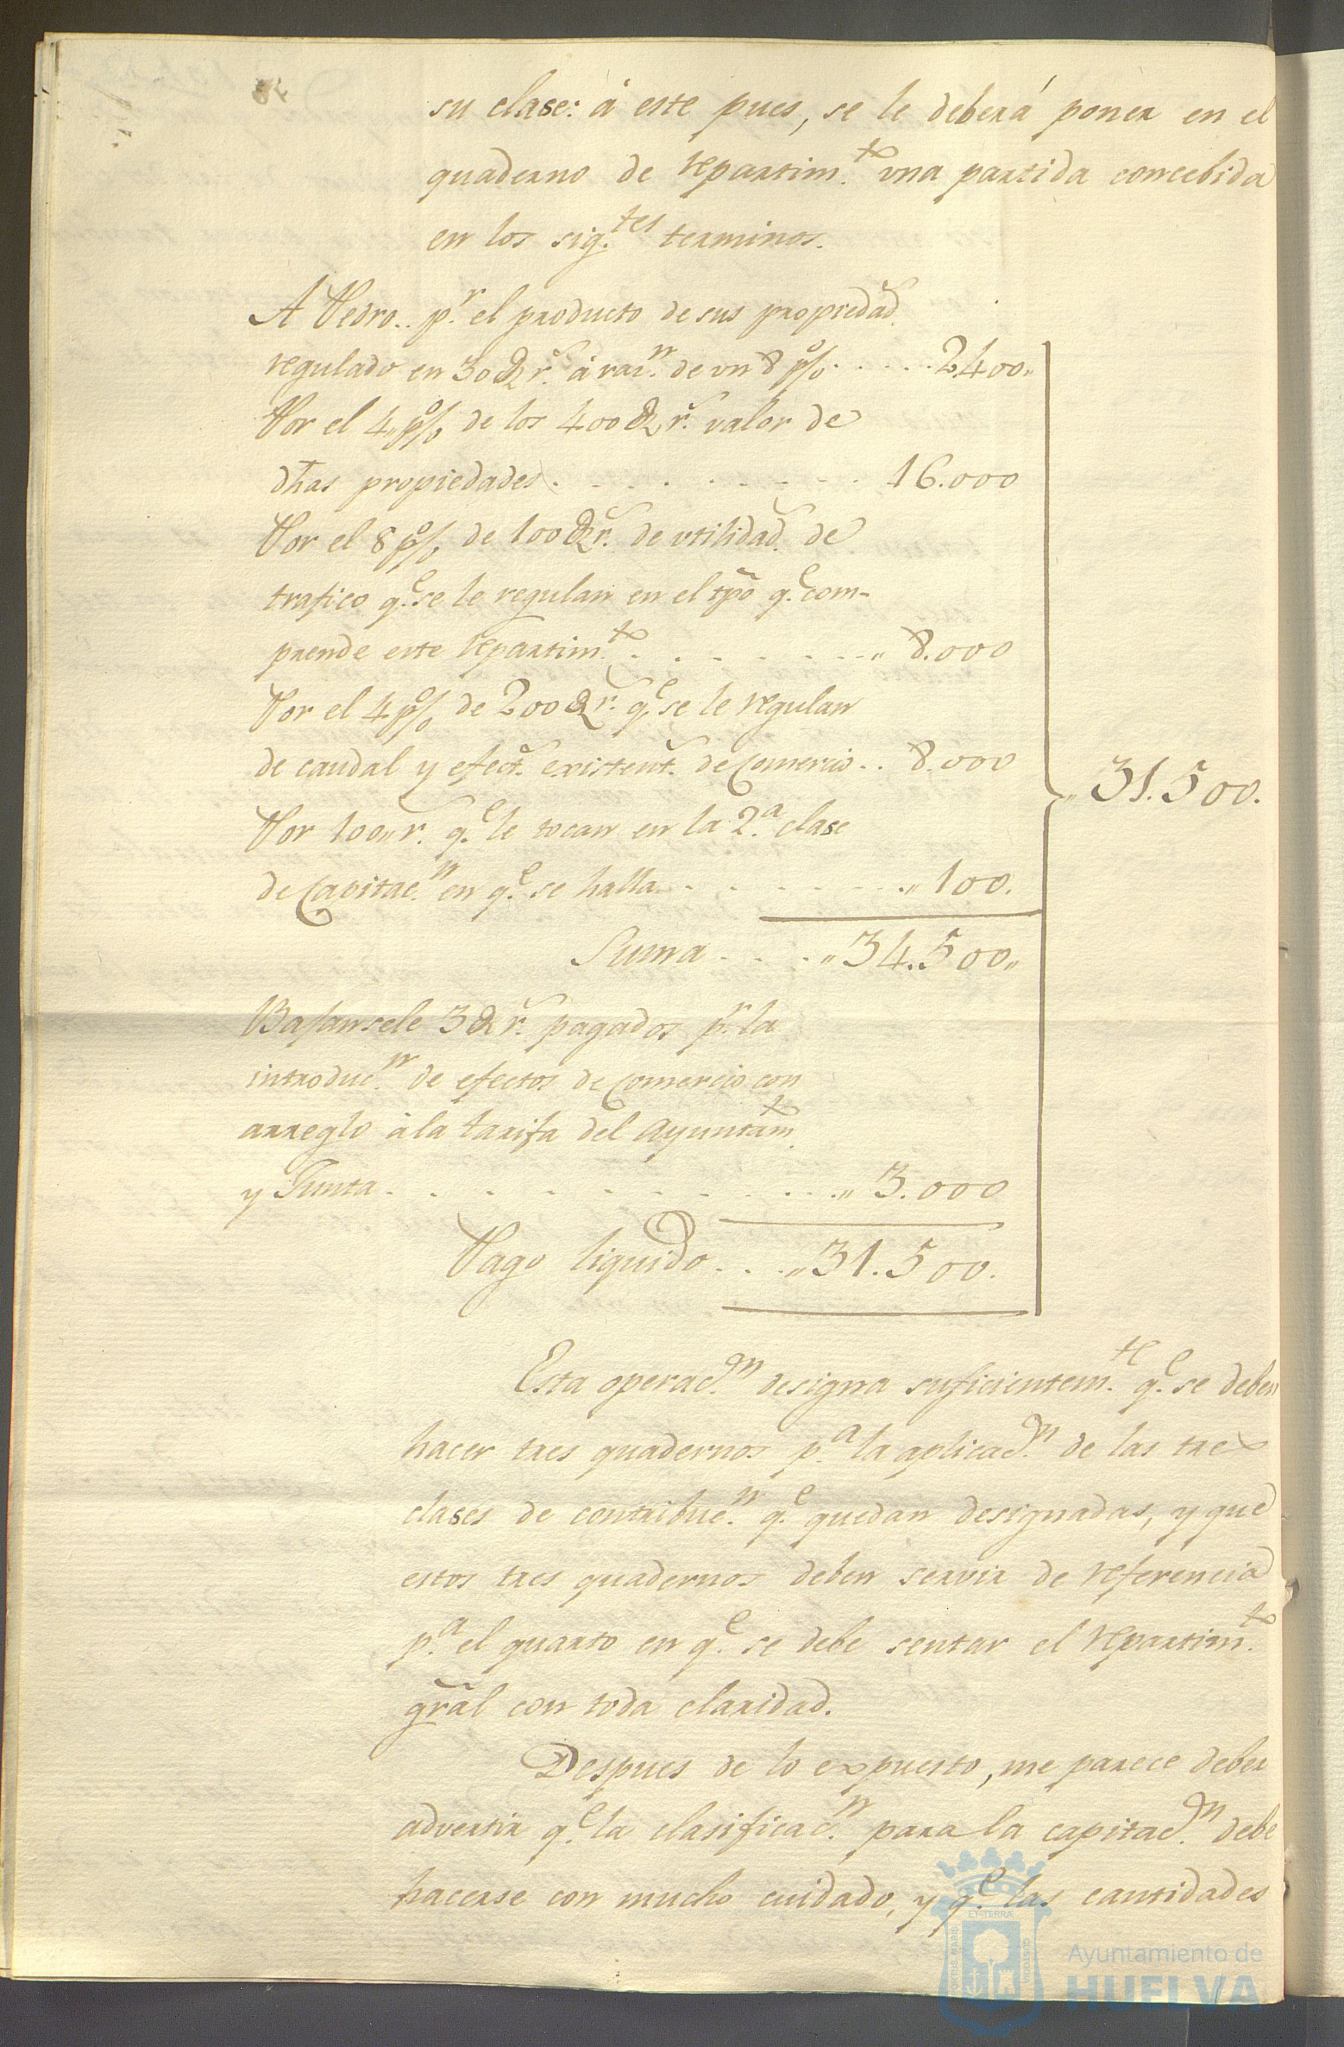 su clase: á este pues, se le deberá poner en el
quaderno de repartim.to una partida concebida
en los sig.tes terminos.
A Pedro.. p.r el producto de sus propiedad.s
regulado en 30 @ r.s á raz.n de un 8 p% . . . . . 2.400,,
Por el 4,, p% de los 400 @ r.s valor de
dhas propiedades . . . . . . . . . 16.000
Por el 8 p% de 100 @ r.s de utilidad.s de
trafico q.e se le regulan en el tpo q.e com-
prende este repartim.to . . . . . . . ,, 8.000
Por el 4 p% de 200 @ r.s q.e se le regulan
de caudal y efect.s existent.s de Comercio . . 8.000
,, 31.500.
Por 100,, r.s q.e le tocan en la 2.a clase
de Capitac.n en q.e se halla . . . . . . . ,, 100.
Suma . . . . ,, 34.500,,
Bajansele 3 @ r.s pagados p.r la
introduc.n de efectos de Comercio con
arreglo á la tarifa del Ayuntam.to
y Junta . . . . . . . . . . . . ,, 3.000
Pago liquido . . . ,, 31.500.
Esta operac.n designa suficientem.te q.e se deben
hacer tres quadernos p.a la aplicac.n de las tres
clases de contribuc.n q.e quedan designadas, y que
estos tres quadernos deben servir de referencia
p.a el quarto en q.e se debe sentar el repartim.to
gral con toda claridad.
Despues de lo expuesto, me parece deber
advertir q.e la clasificac.n para la capitac.n debe
hacerse con mucho cuidado, y q.e las cantidades
Ayuntamiento de
HUELVA